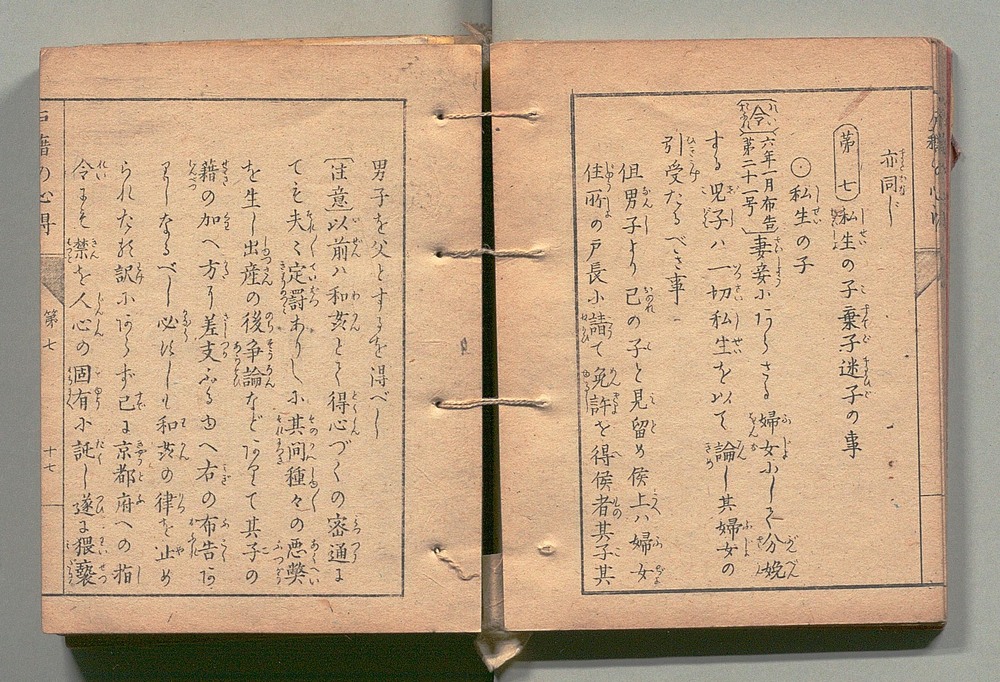 亦同し
第七 私生の子棄子迷子の事
⊙私生の子
〔令〕六年一月布告第二十一号 妻妾にあらさる婦女にして分娩
する児子ハ一切私生を以て論し其婦女の
引受たるべき事
但男子より己の子と見留め候上ハ婦女
住所の戸長に請て免許を得候者其子其
男子を父とするを得べし
〔注意〕以前ハ和姦とて得心づくの密通は
ても夫々定罰ありしに其間種々の悪弊
を生し出産の後争論などありて其子の
籍の加へ方に差支ふる由へ右の布告あ
りしなるべし必ずしも和姦の律を止め
られたる訳にあらず已に京都府への指
令にも禁を人心の固有に託し遂に猥褻
戸籍の心得
第七
十七